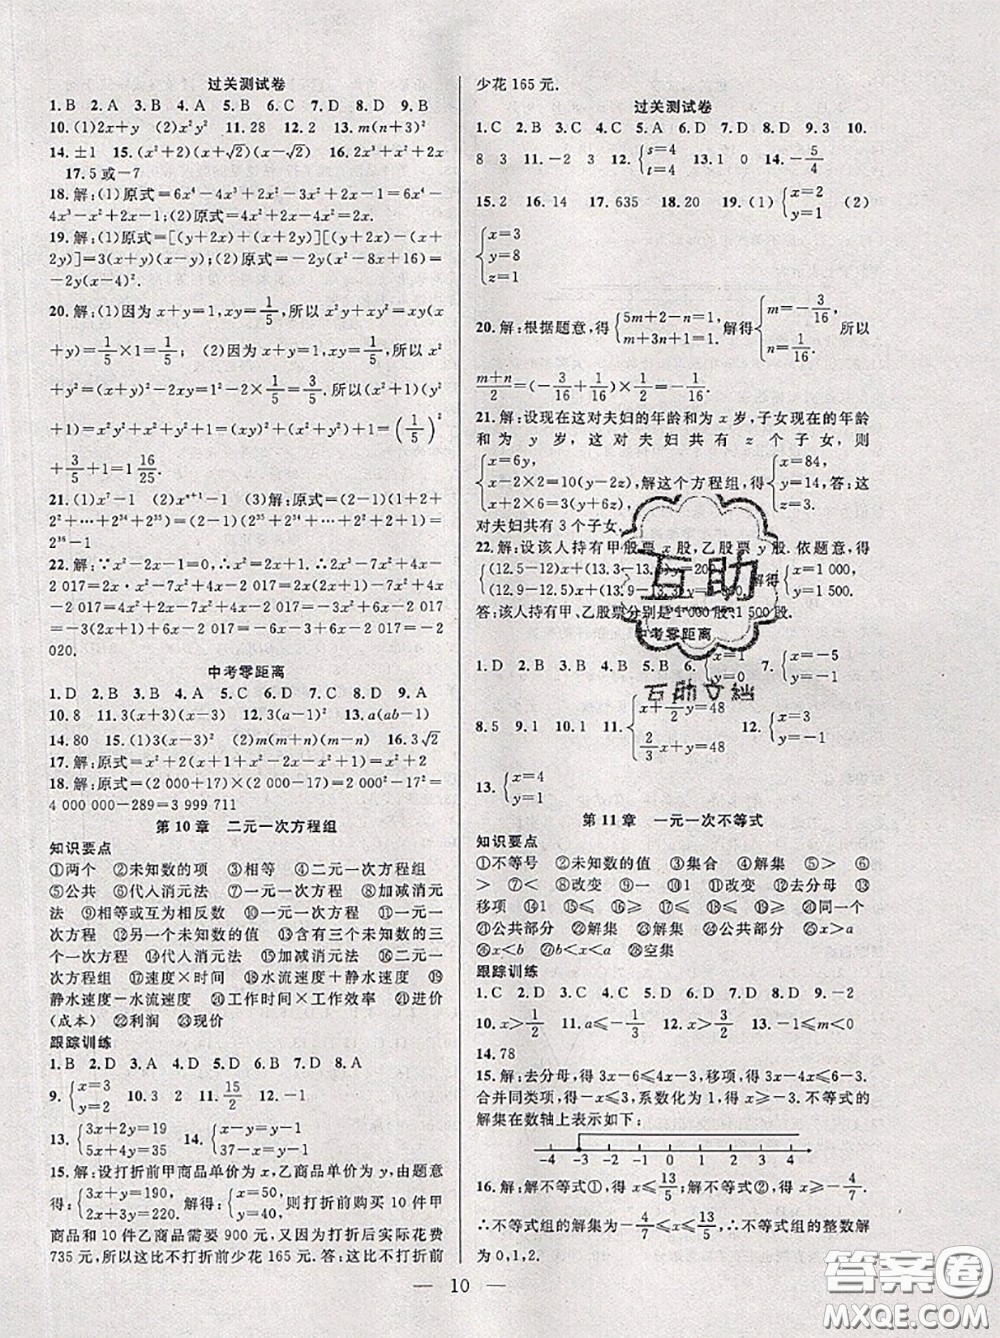 过关测试卷
1.B 2.A 3.A 4.A 5.B 6.C 7.D 8.D 9.B
10.(1)2x+y (2)x²y² 11.28 12.2 13.m(n+3)²
14.±1 15.(x²+2)(x+√2)(x-√2) 16.2x³+x²+2x
17.5或-7
18.解:(1)原式=6x⁴-4x³+2x²-3x²+2x-1=6x⁴-
4x³-x²+2x-1;(2)原式=4x²+2x-4x²=2x.
19.解:(1)原式=[(y+2x)+(x+2y)][(y+2x)-(x+
2y)]=3(x+y)(x-y);(2)原式=-2y(x²-8x+16)=
-2y(x-4)².
20.解:(1)因为x+y=1,xy=1/5,所以x²y+xy²=xy(x
+y)=1/5×1=1/5; (2)因为x+y=1,xy=1/5,所以x²
+y²=(x+y)²-2xy=1-2×1/5=3/5.所以(x²+1)(y²
+1)=x²y²+x²+y²+1=(xy)²+(x²+y²)+1=(1/5)²
+3/5+1=1 16/25.
21.(1)x⁷-1 (2)xⁿ⁺¹-1 (3)解:原式=(2-1)(1+2+
2²+…+2³⁴+2³⁵)=(2-1)(2³⁵+2³⁴+…+2²+2+1)=
2³⁶-1
22.解:∵x²-2x-1=0,∴x²=2x+1,∴原式=2x·x²-7x²+4x-
2 017=2x·(2x+1)-7(2x+1)+4x-2 017=4x²+2x-
14x-7+4x-2 017=4x²-8x-2 024=4(2x+1)-8x-2 024=-2
020.
中考零距离
1.D 2.B 3.B 4.A 5.C 6.D 7.B 8.D 9.A
10.8 11.3(x+3)(x-3) 12.3(a-1)² 13.a(ab-1)²
14.80 15.(1)3(x-3) (2)m(m+n)(m-n) 16.3√2
17.解:原式=x²+2(1+x+x²-2x-x²)-x=x²+2
18.解:原式=(2 000+17)(2 000-17)-2 000²-17²=
4 000 000-289=3 999 711
第10章 二元一次方程组
知识要点
①两个 ②未知数的项 ③相等 ④二元一次方程组
⑤公共 ⑥代入消元法 ⑦一元一次方程 ⑧加减消元
法 ⑨相等或互为相反数 ⑩一元一次方程 ⑪一元一
次方程 ⑫另一个未知数的值 ⑬含有三个未知数的三
个一次方程 ⑭代入消元法 ⑮加减消元法 ⑯二元一
次方程组 ⑰速度×时间 ⑱水流速度+静水速度 ⑲
静水速度-水流速度 ⑳工作时间×工作效率 ㉑进价
(成本) ㉒利润 ㉓现价
跟踪训练
1.B 2.D 3.A 4.D 5.D 6.A 7.D 8.A
9.{x=3 y=2 10.3 2 11.15/2 12.-1
13.{3x+2y=19 5x+4y=35 14.{x+y=1 37-x=y
15.解:设打折前甲商品单价为x,乙商品单价为y,由题意
得:{3x+y=190, 2x+3y=220. 解得:{x=50, y=40. 则打折前购买10件甲
商品和10件乙商品需要900元,又因为打折后实际花费
735元,所以这比不打折前少花165元.答:这比不打折前
少花165元.
过关测试卷
1.C 2.B 3.C 4.C 5.A 6.D 7.D 8.D 9.D 10.
8 3 11.-2 3 12.{s=4 t=4 13.1 0 14.-5/4
15.2 16.14 17.635 18.20 19.(1){x=2 y=1 (2)
{x=3 y=8 z=1
20.解:根据题意,得{5m+2-n=1, m+3n+1=1. 解得{m=-3/16, n=1/16. 所以
(m+n)/2=(-3/16+1/16)×1/2=-1/16.
21.解:设现在这对夫妇的年龄和为x岁,子女现在的年龄
和为y岁,这对夫妇共有z个子女,则
{x=6y, x-2×2=10(y-2z), x+2×6=3(y+6z), 解这个方程组,得{x=84, y=14, z=3. 答:这
对夫妇共有3个子女.
22.解:设该人持有甲股票x股,乙股票y股.依题意,得
{(12.5-12)x+(13.3-13.9)y=200 解得{x=1 000, y=1 500.
答:该人持有甲、乙股票分别是1 000股、1 500股.
中考零距离
1.D 2.D 3.B 4.B 5.B 6.{x=1 y=0 7.{x=-5 y=-1
8.5 9.1 10.1 11.{x+1/2y=48 2/3x+y=48 12.{x=3 y=1
13.{x=4 y=1
第11章 一元一次不等式
知识要点
①不等号 ②未知数的值 ③集合 ④解集 ⑤> ⑥
> ⑦< ⑧改变 ⑨1 ⑩改变 ⑪> ⑫去分母 ⑬
移项 ⑭1 ⑮≤ ⑯≥ ⑰≤ ⑱≥ ⑲≤ ⑳同一个
㉑公共部分 ㉒解集 ㉓解集 ㉔公共部分 ㉕x>a
㉖x<b ㉗b<x<a ㉘空集
跟踪训练
1.C 2.D 3.C 4.D 5.D 6.C 7.D 8.D 9.-2
10.x>1/2 11.a≤-1/3 12.x>4 13.-1≤m<0
14.78
15.解:去分母,得3x-6≤4x-3,移项,得3x-4x≤6-3.
合并同类项,得-x≤3,系数化为1,得x≥-3.不等式的
解集在数轴上表示如下:
-4 -3 -2 -1 0 1 2 3 4
16.解:解不等式①,得x≤13/5;解不等式②,得x≥-4/7.
∴不等式组的解集为-4/7≤x≤13/5,∴不等式组的整数解
为0,1,2.
— 10 —
互助
互助文档
答案圈
MXQE.COM